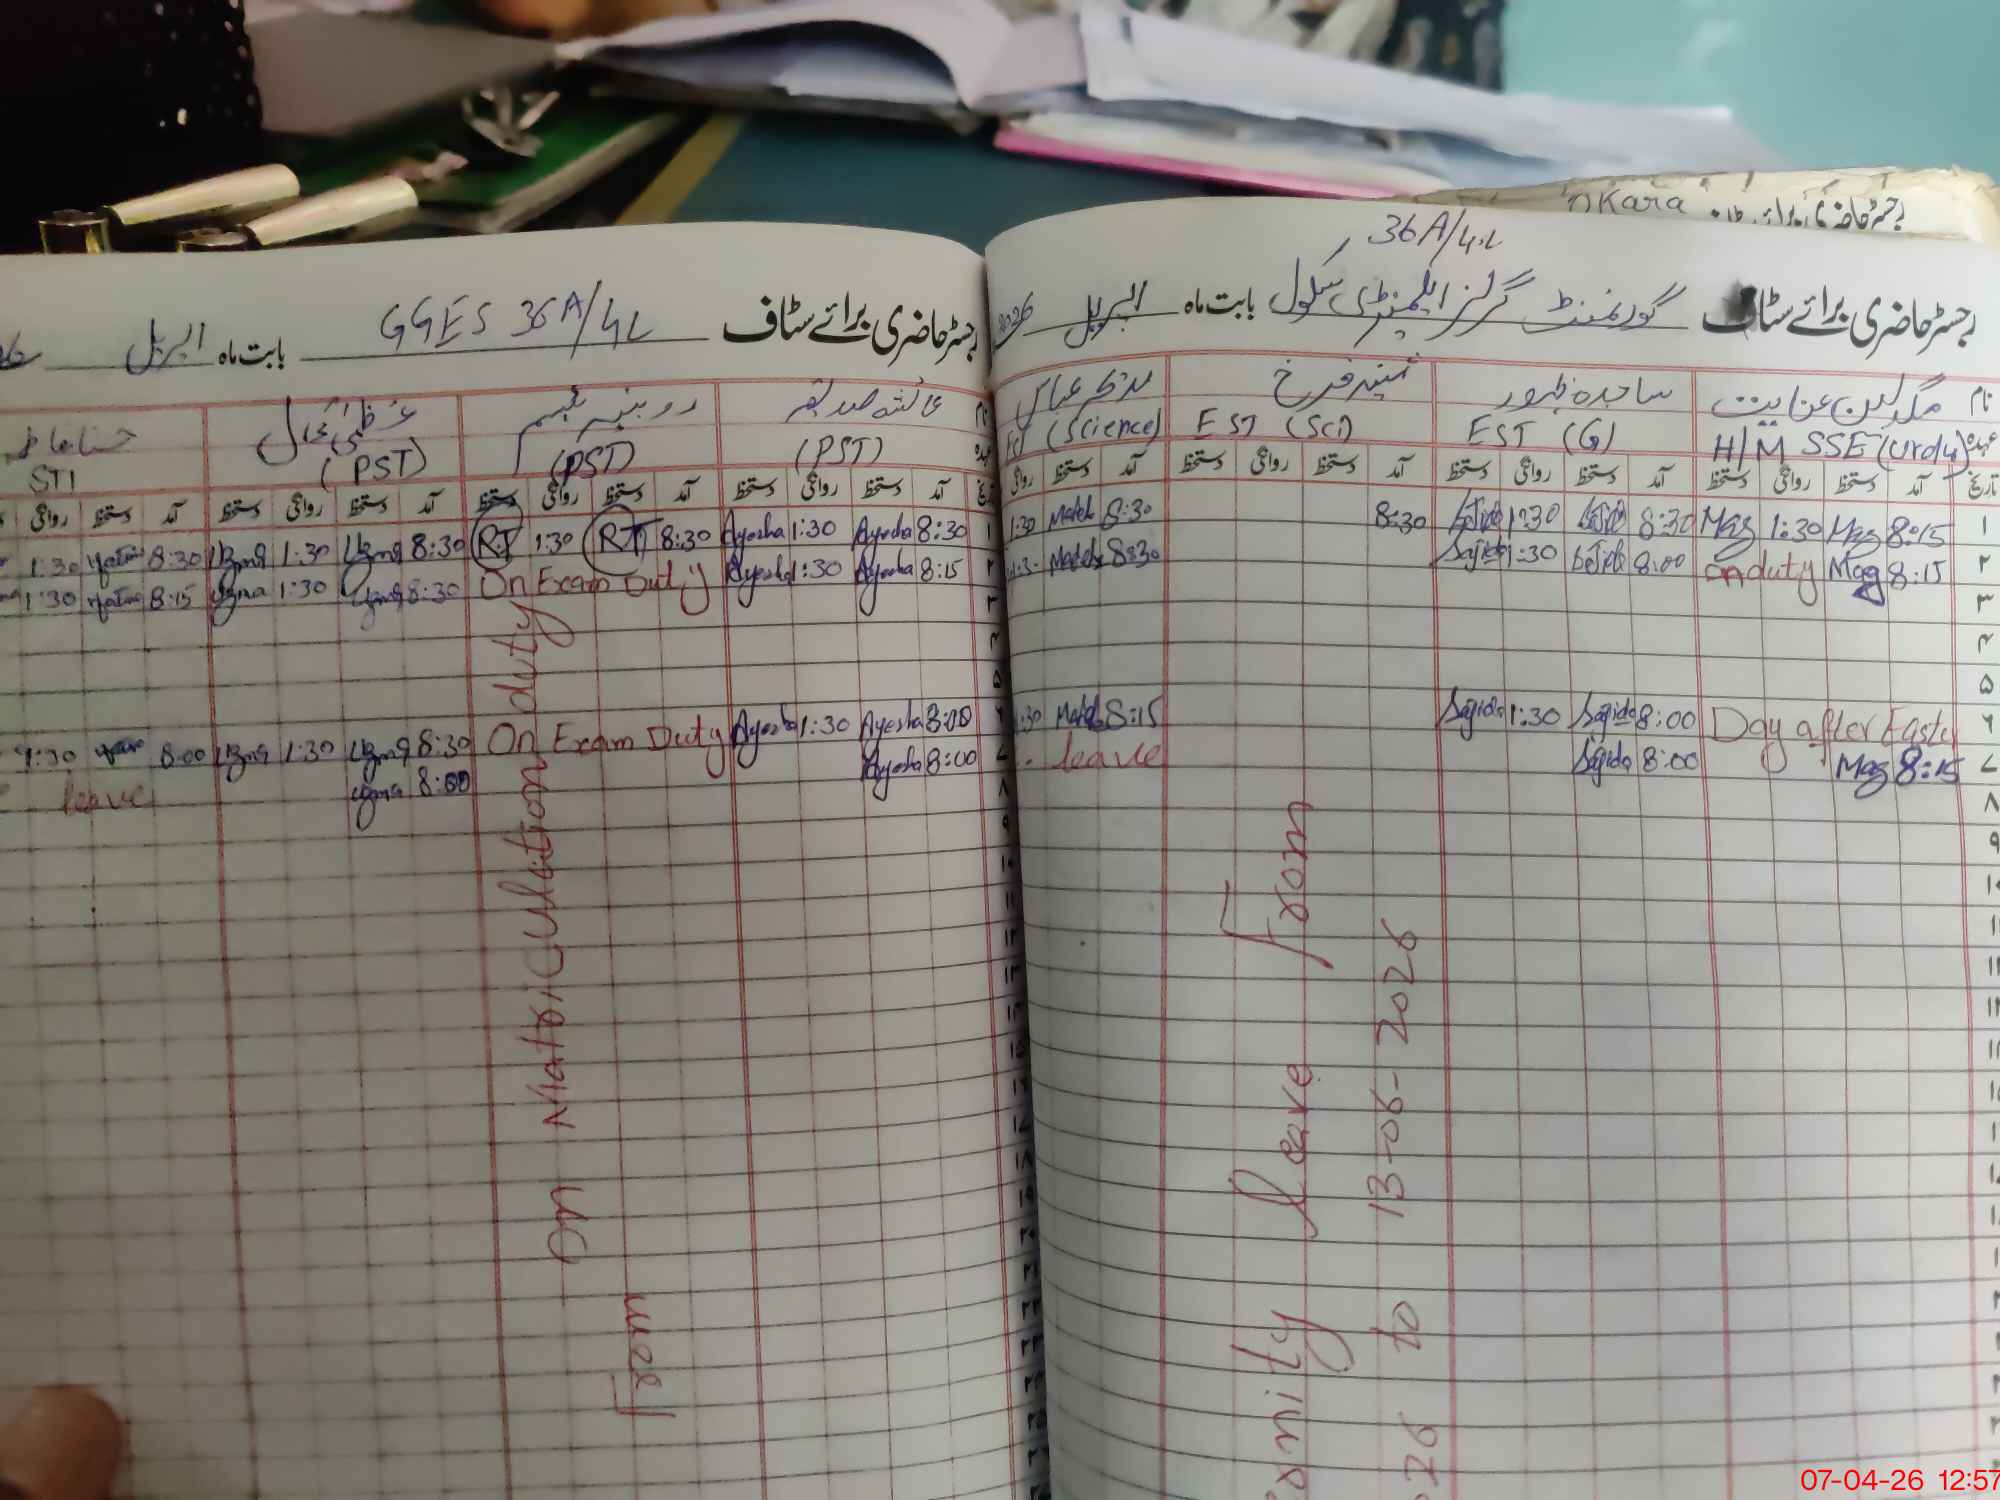 Okara رجسٹر حاضری برائے
36A/4.L
رجسٹر حاضری برائے سٹاف گورنمنٹ گرلز ایلیمنٹری سکول بابت ماہ اپریل 2026
نام مگدلین عنایت ساجدہ ظہور ثمینہ فرخ
عہدہ H/M SSE (Urdu) EST (G) EST (Sci) (Science)
تاریخ آمد دستخط روانگی دستخط آمد دستخط روانگی دستخط آمد دستخط روانگی دستخط آمد دستخط روانگی
۱ 8:15 Mag 1:30 Mag 8:30 Sajida 1:30 Sajida 8:30 8:30 1:30
۲ 8:15 Mag on duty 8:00 Sajida 1:30 Sajida 8:30
۳
۴
۵
۶ Day after Easter 8:00 Sajida 1:30 Sajida 8:15 :30
۷ 8:15 Mag 8:00 Sajida leave
۸
۹
Leave From
13-06-2026
to
رجسٹر حاضری برائے سٹاف GGES 36A/4L بابت ماہ اپریل
نام عائشہ صدیقہ روبینہ تبسم عظمیٰ
عہدہ (PST) (PST) (PST) STI
تاریخ آمد دستخط روانگی دستخط آمد دستخط روانگی دستخط آمد دستخط روانگی دستخط آمد دستخط روانگی
8:30 Ayesha 1:30 Ayesha 8:30 RT 1:30 RT 8:30 Uzma 1:30 Uzma 8:30 1:30
8:15 Ayesha 1:30 Ayesha On Exam Duty 8:30 Uzma 1:30 Uzma 8:15 1:30
8:00 Ayesha 1:30 Ayesha On Exam Duty 8:30 Uzma 1:30 Uzma 8:00 1:30
8:00 Ayesha 8:00 Uzma leave
On Matriculation duty
From
07-04-26 12:57